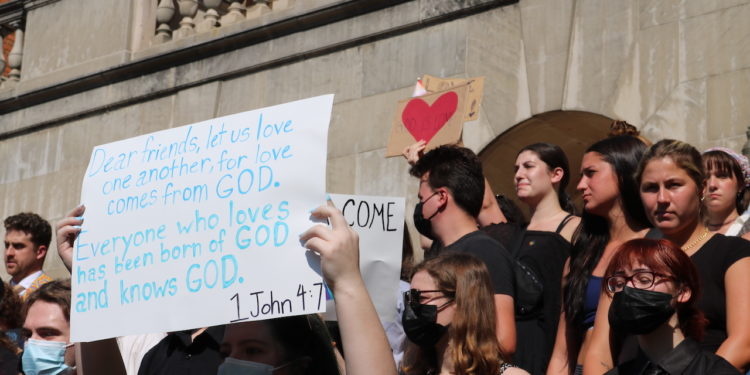 Dear friends, let us love
one another, for love
comes from GOD.
Everyone who loves
has been born of GOD
and knows GOD.
1 John 4:7
COME